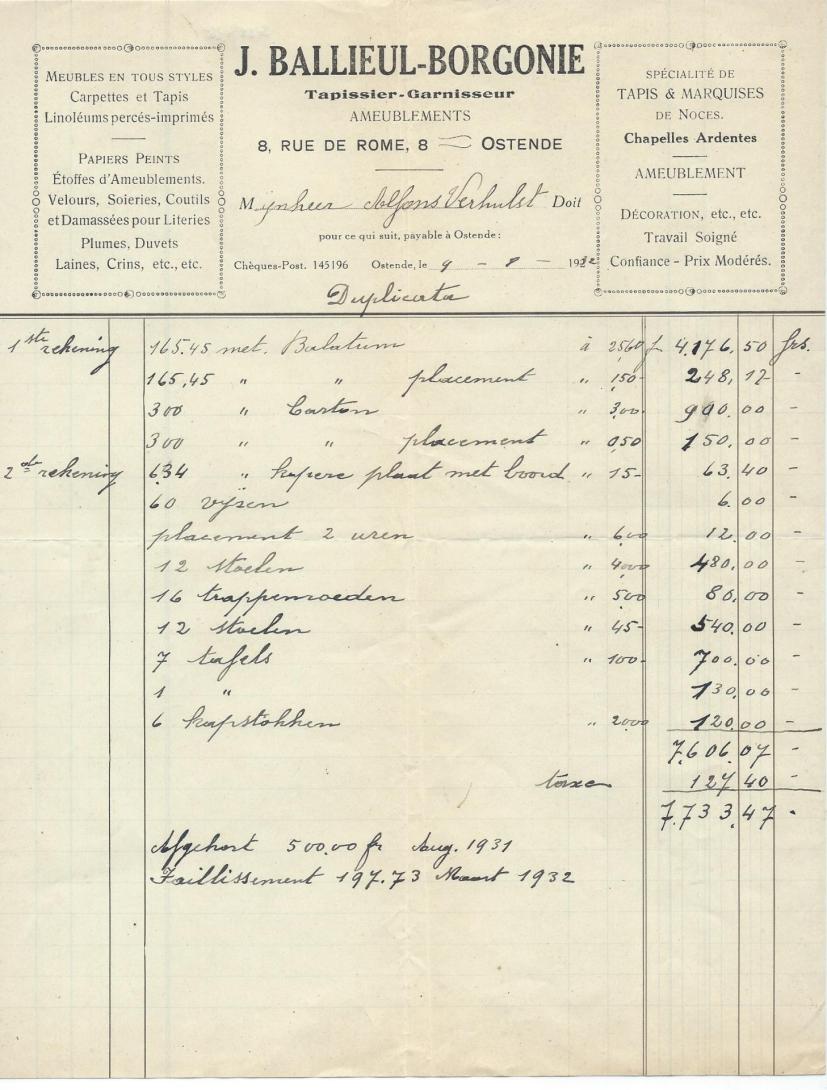 MEUBLES EN TOUS STYLES
Carpettes et Tapis
Linoléums percés-imprimés
PAPIERS PEINTS
Étoffes d'Ameublements.
Velours, Soieries, Coutils
et Damassées pour Literies
Plumes, Duvets
Laines, Crins, etc., etc.
J. BALLIEUL-BORGONIE
Tapissier-Garnisseur
AMEUBLEMENTS
8, RUE DE ROME, 8 OSTENDE
Mynheer Alfons Verhulst Doit
pour ce qui suit, payable à Ostende :
Chèques-Post. 145196 Ostende, le 9 - 8 - 1932
Duplicata
SPÉCIALITÉ DE
TAPIS & MARQUISES
DE NOCES.
Chapelles Ardentes
AMEUBLEMENT
DÉCORATION, etc., etc.
Travail Soigné
Confiance - Prix Modérés.
1ste rekening 165.45 met. Balatum à 2560 f 4.176.50 frs.
165,45 " " placement " 1,50- 248,17 -
300 " Carton " 3,00- 900.00 -
300 " " placement " 0,50 150,00 -
2de rekening 6.34 " kopere plaat met boord " 15- 63.40 -
60 vyzen 6.00 -
placement 2 uren " 6,00 12.00 -
12 stoelen " 40,00 480.00 -
16 trappenroeden " 5,00 80,00 -
12 stoelen " 45- 540.00 -
7 tafels " 100- 700.00 -
1 " 130,00 -
6 kapstokken " 20,00 120,00 -
7.606.07 -
taxe 127 40 -
7.733.47 -
Afgekort 500.00 fr Aug. 1931
Faillissement 197.73 Maart 1932